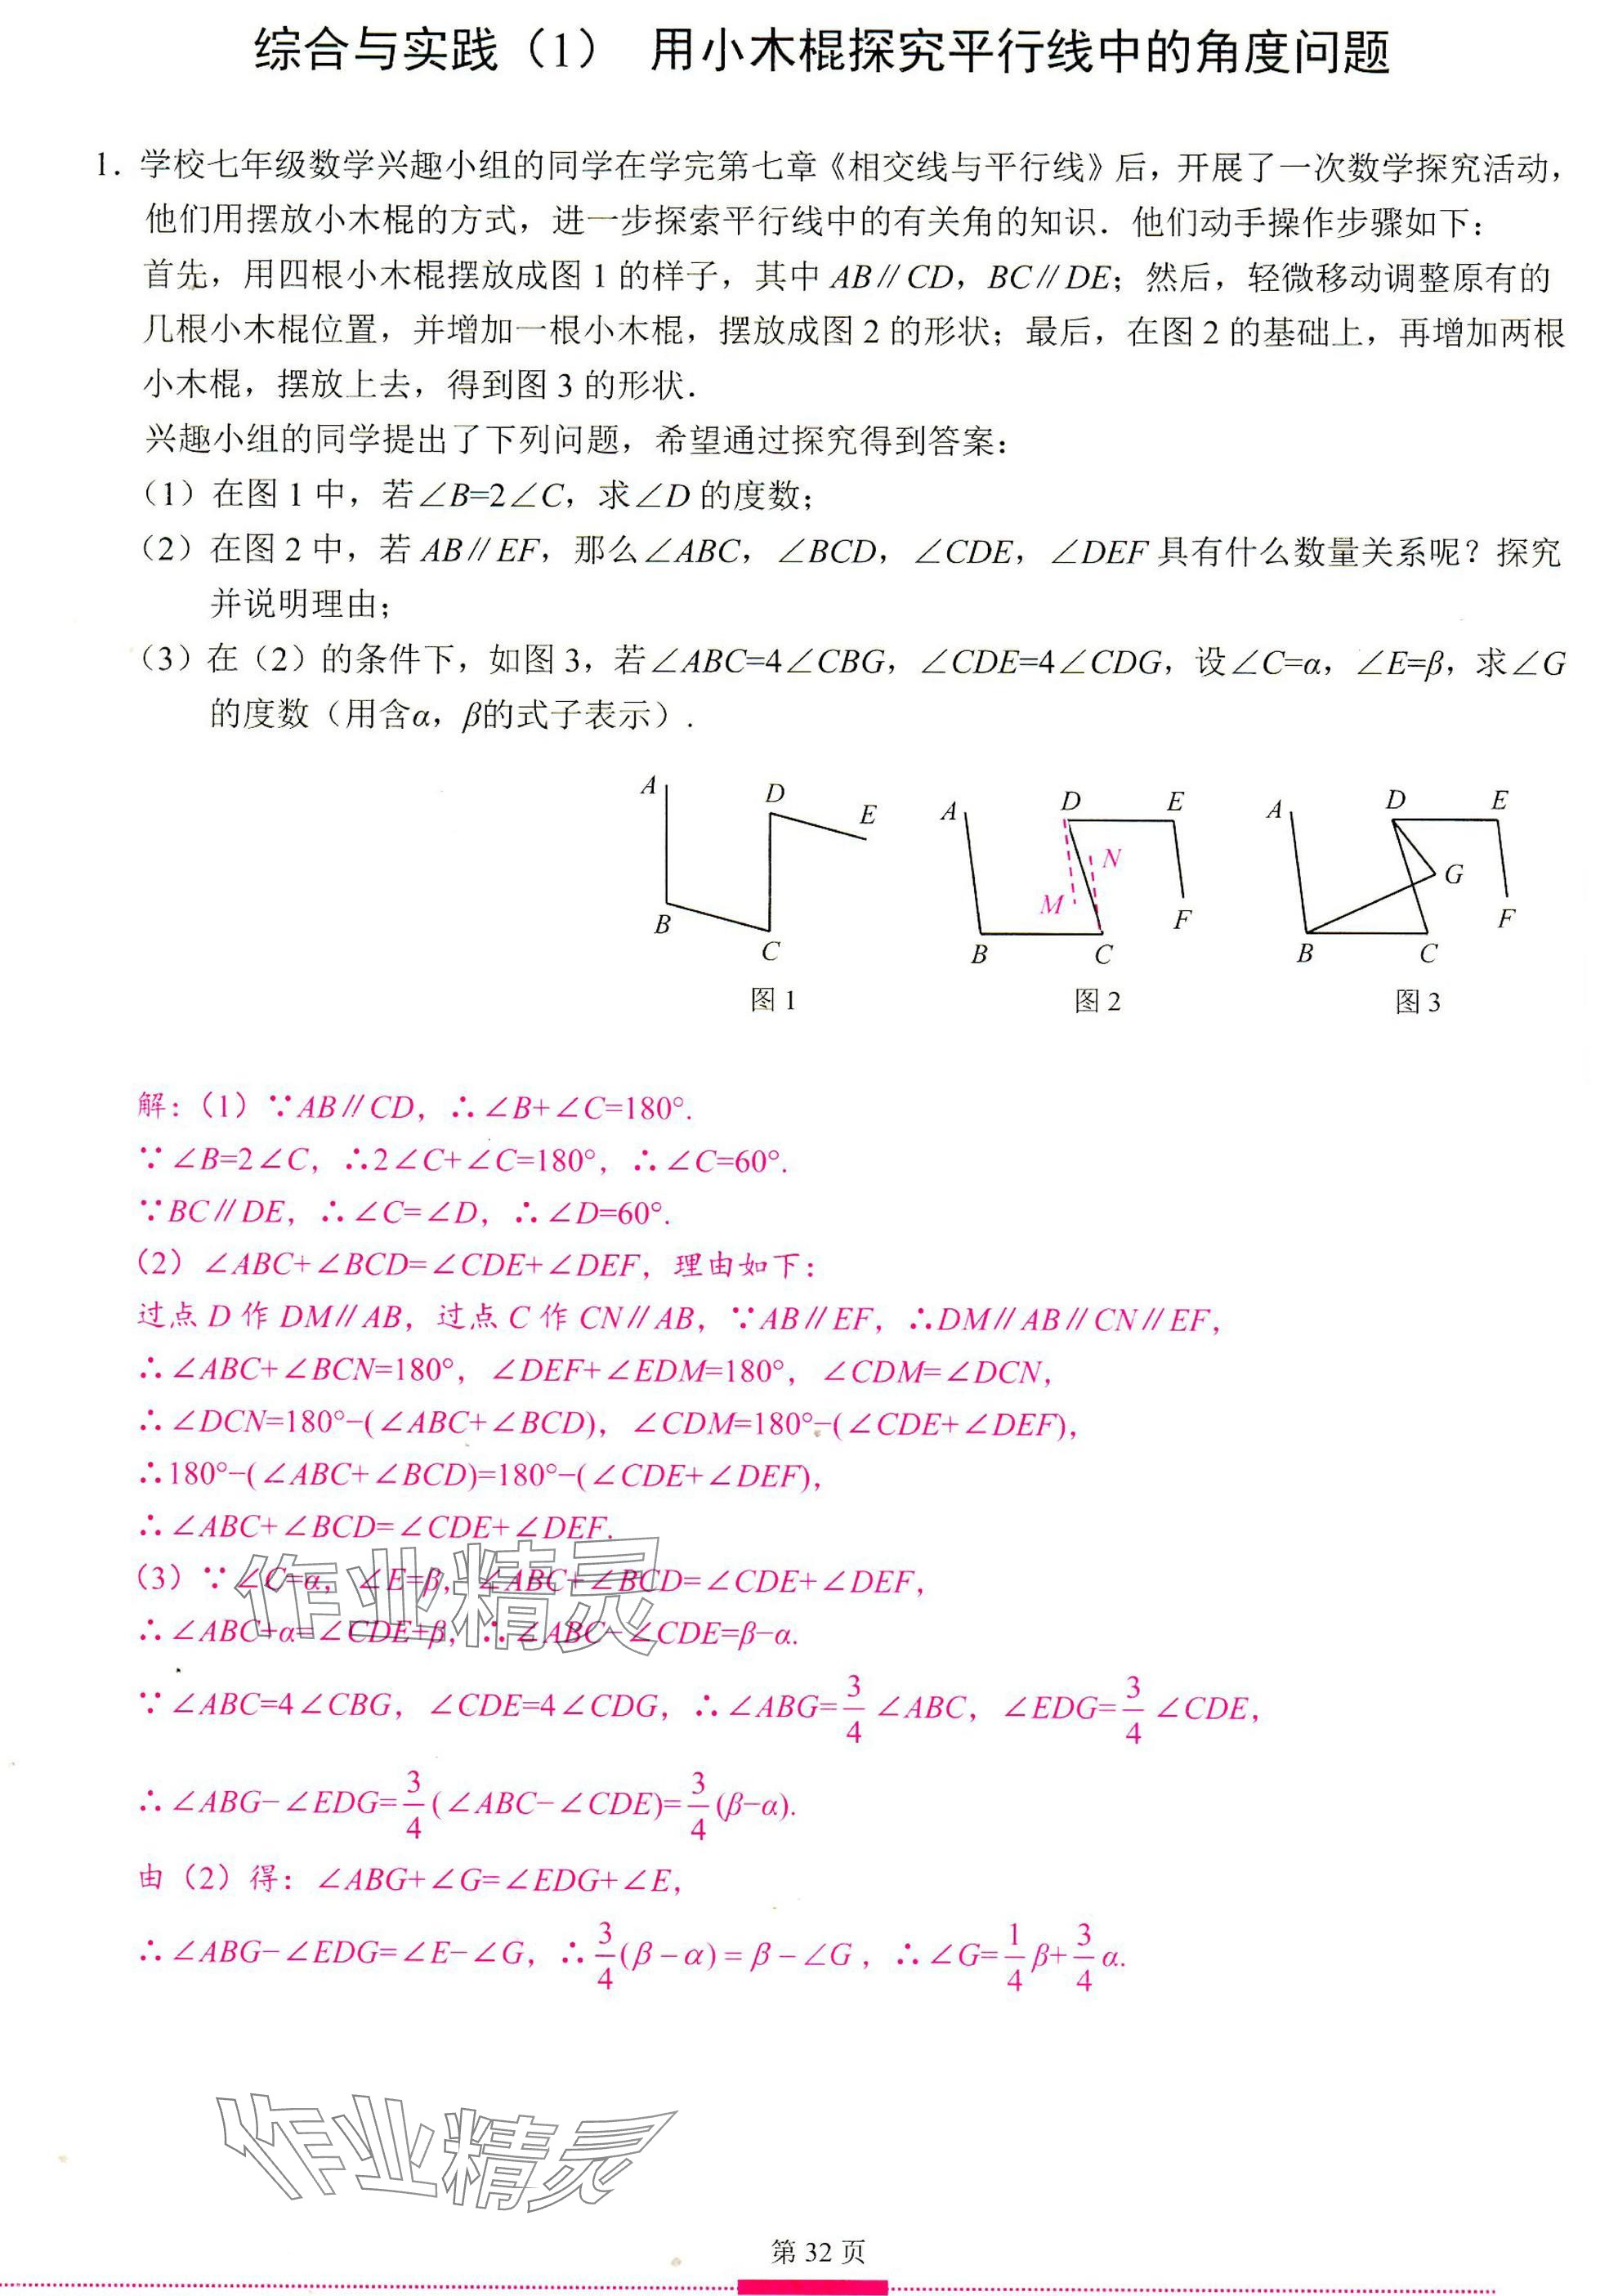 综合与实践（1） 用小木棍探究平行线中的角度问题
1. 学校七年级数学兴趣小组的同学在学完第七章《相交线与平行线》后，开展了一次数学探究活动，
他们用摆放小木棍的方式，进一步探索平行线中的有关角的知识．他们动手操作步骤如下：
首先，用四根小木棍摆放成图 1 的样子，其中 AB∥CD，BC∥DE；然后，轻微移动调整原有的
几根小木棍位置，并增加一根小木棍，摆放成图 2 的形状；最后，在图 2 的基础上，再增加两根
小木棍，摆放上去，得到图 3 的形状．
兴趣小组的同学提出了下列问题，希望通过探究得到答案：
（1）在图 1 中，若∠B=2∠C，求∠D 的度数；
（2）在图 2 中，若 AB∥EF，那么∠ABC，∠BCD，∠CDE，∠DEF 具有什么数量关系呢？探究
并说明理由；
（3）在（2）的条件下，如图 3，若∠ABC=4∠CBG，∠CDE=4∠CDG，设∠C=α，∠E=β，求∠G
的度数（用含α，β的式子表示）．
A D E B C
图 1
A D E N M F B C
图 2
A D E G F B C
图 3
解：（1）∵AB∥CD，∴∠B+∠C=180°.
∵∠B=2∠C，∴2∠C+∠C=180°，∴∠C=60°.
∵BC∥DE，∴∠C=∠D，∴∠D=60°.
（2）∠ABC+∠BCD=∠CDE+∠DEF，理由如下：
过点 D 作 DM∥AB，过点 C 作 CN∥AB，∵AB∥EF，∴DM∥AB∥CN∥EF，
∴∠ABC+∠BCN=180°，∠DEF+∠EDM=180°，∠CDM=∠DCN，
∴∠DCN=180°−(∠ABC+∠BCD)，∠CDM=180°−(∠CDE+∠DEF)，
∴180°−(∠ABC+∠BCD)=180°−(∠CDE+∠DEF)，
∴∠ABC+∠BCD=∠CDE+∠DEF.
（3）∵∠C=α，∠E=β，∠ABC+∠BCD=∠CDE+∠DEF，
∴∠ABC+α=∠CDE+β，∴∠ABC−∠CDE=β−α.
∵∠ABC=4∠CBG，∠CDE=4∠CDG，∴∠ABG=3/4∠ABC，∠EDG=3/4∠CDE，
∴∠ABG−∠EDG=3/4(∠ABC−∠CDE)=3/4(β−α).
由（2）得：∠ABG+∠G=∠EDG+∠E，
∴∠ABG−∠EDG=∠E−∠G，∴3/4(β−α)=β−∠G，∴∠G=1/4β+3/4α.
作业精灵
作业精灵
第 32 页